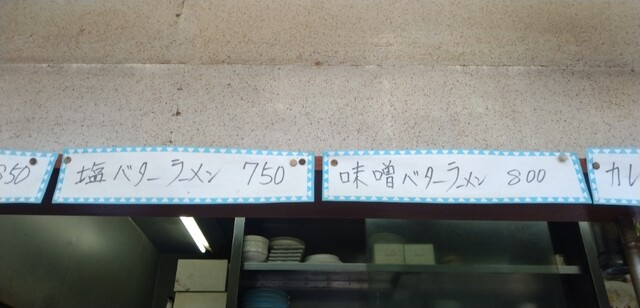 850
塩バターラーメン 750
味噌バターラーメン 800
カレ